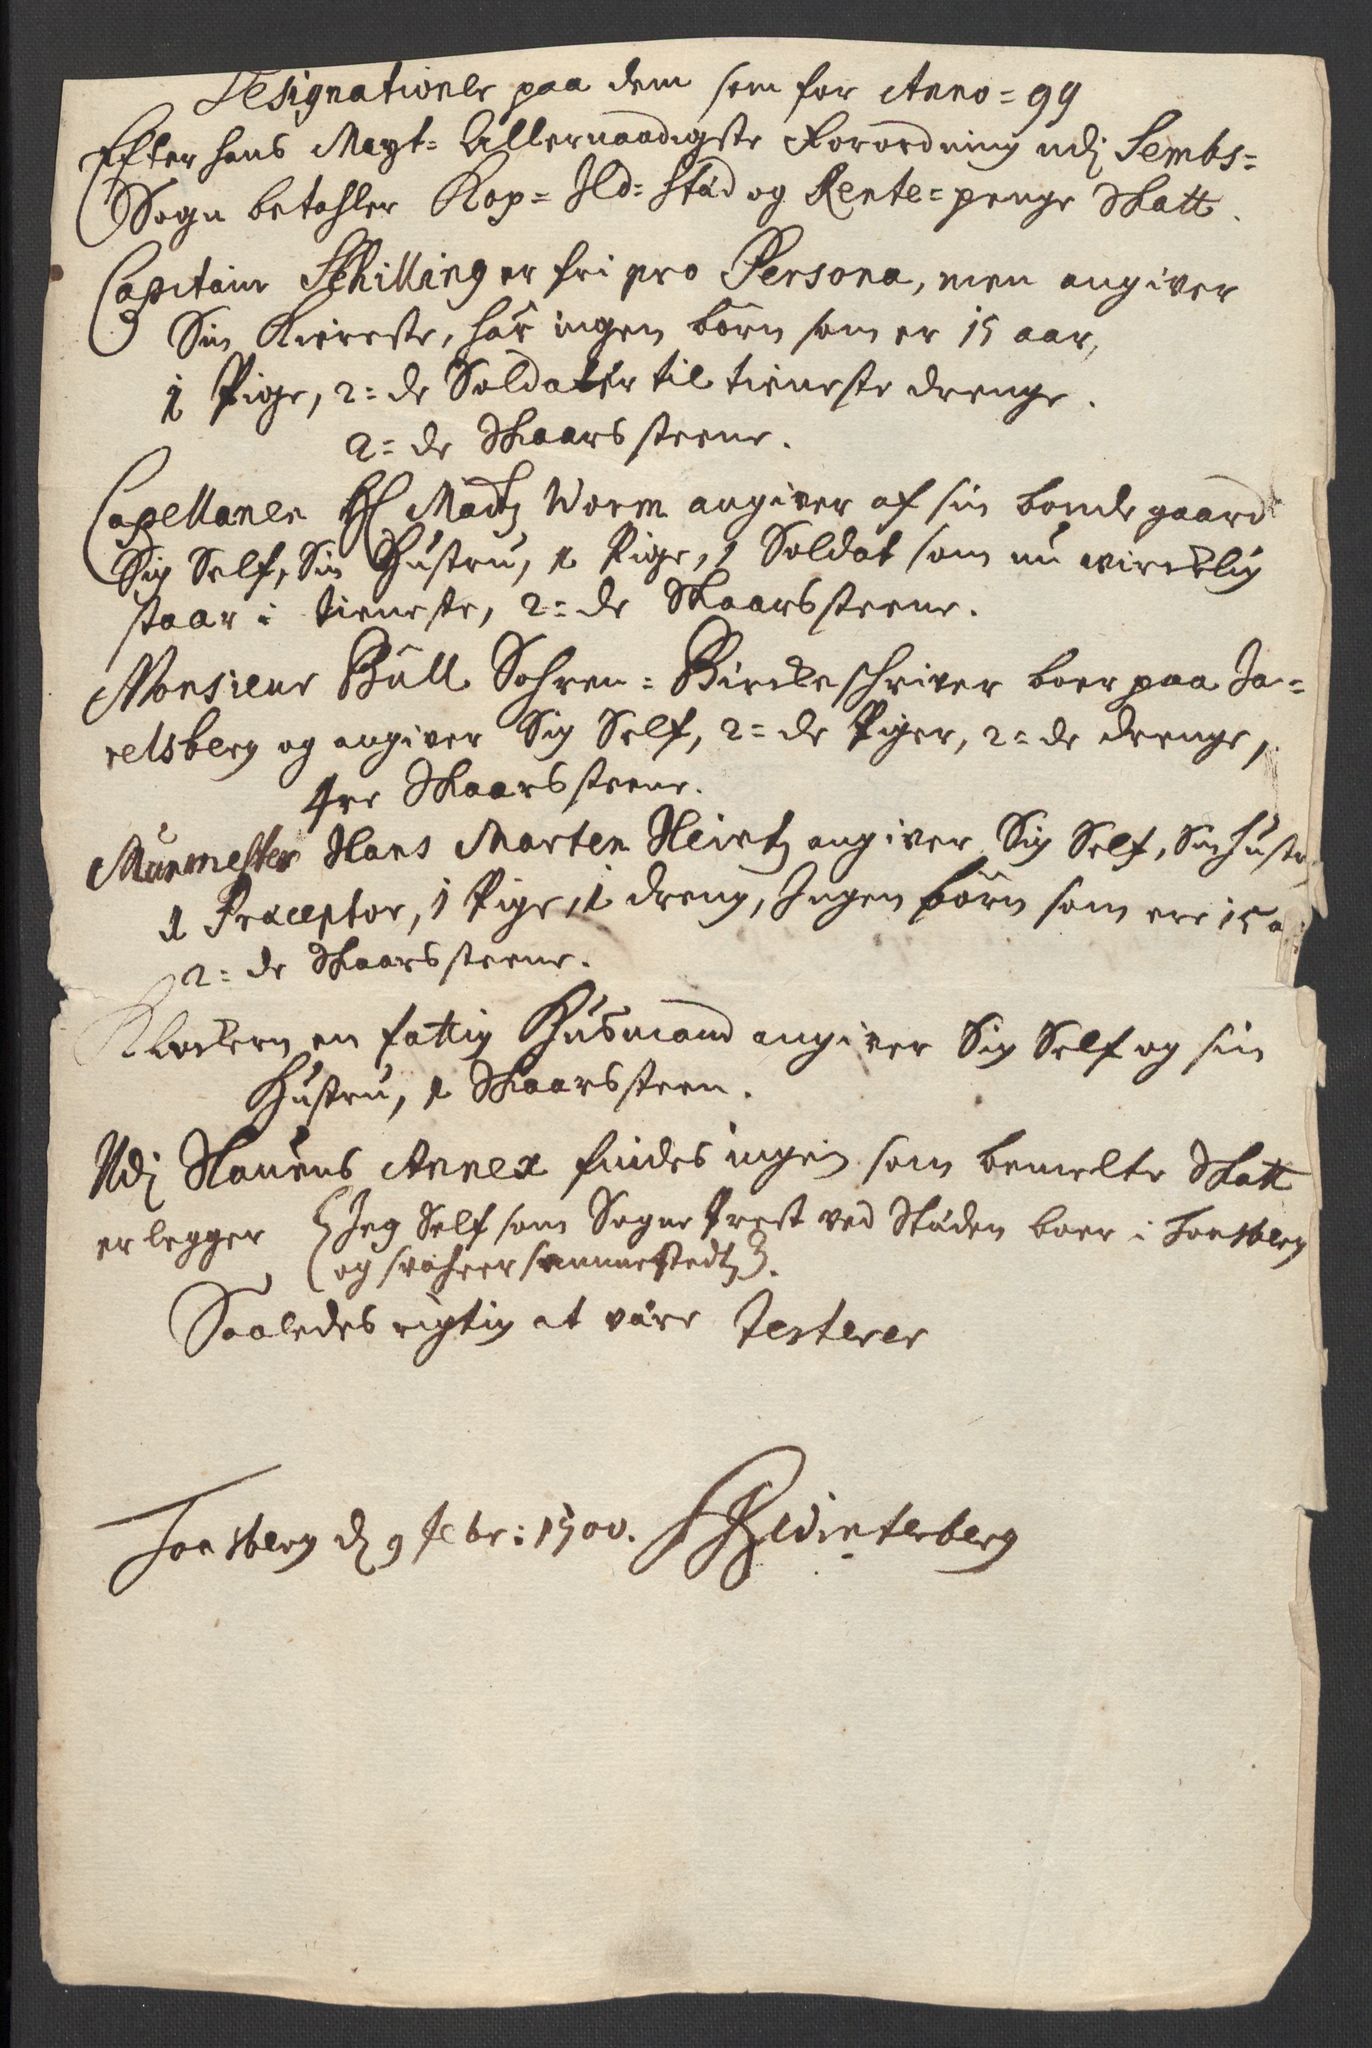 Designationer paa dem som for Anno = 99
Efter hans Mayt = Allernaadigste Forordning udj Sembs =
Sogn betahler Kop = Ild = stæd og Rente = penge Skatt.
Capitain Schilling er fri pro Persona, men angiver
Sin Kiereste, har ingen börn som er 15 aar,
1 Pige, 2 = de Soldater til tieneste drenge.
2 = de Skaarssteene.
Capellanen Hr Madtz Worm angiver af sin bondegaard
Sig Self, Sin Hustru, 1 Pige, 1 Soldat som nu wircklig
staar i tieneste, 2 = de Skaarssteene.
Monsieur Bull Sohren = Birckeschriver boer paa Ja =
relsberg og angiver Sig Self, 2 = de Piger, 2 = de drenge,
4re Skaarssteene.
Muurmester Hans Morten Heintz angiver Sig Self, Sin Hustr
1 Præceptor, 1 Pige, 1 dreng, Ingen börn som ere 15 a
2 = de Skaarssteene.
Klockern en fattig Huusmand angiver Sig Self og sin
Hustru, 1 Skaarssteen.
Udj Slauens Annex findes ingen som bemelte Skatt
erlegger (Jeg Self som Sogne Prest ved Stæden boer i Tonsberg
og svahrer sammestedtz).
Saaledes rigtig at være Testerer
Tonsberg d 9 Febr: 1700. Winterberg